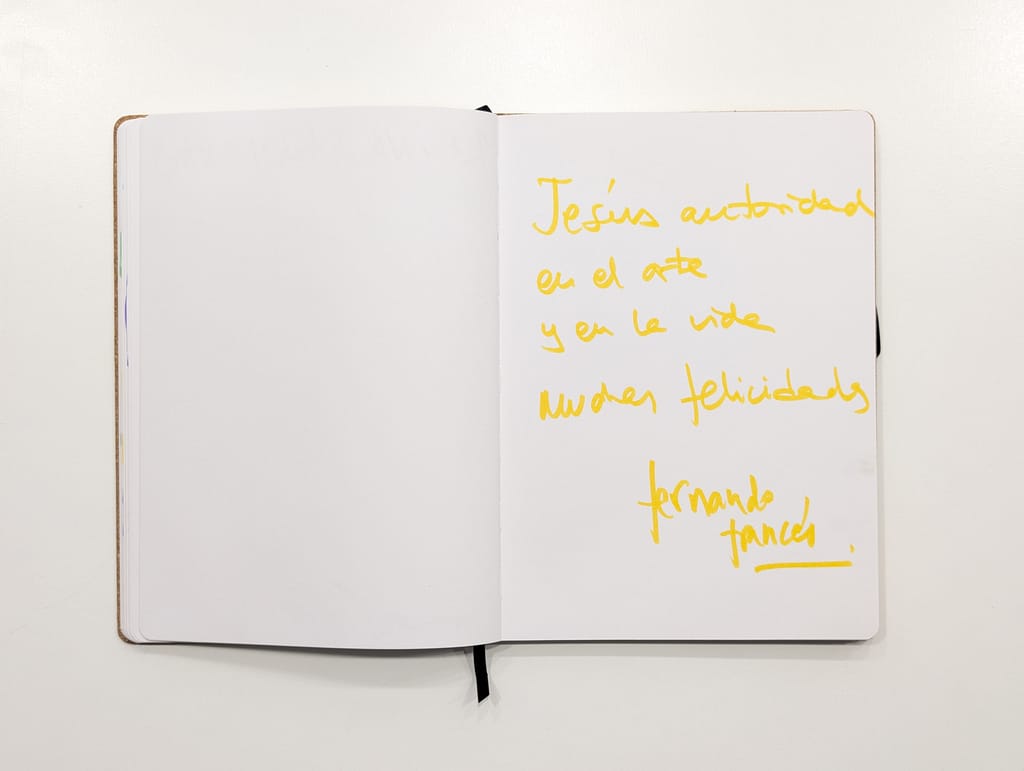 Jesús autoridad
en el arte
y en la vida
muchas felicidades
fernando
francés